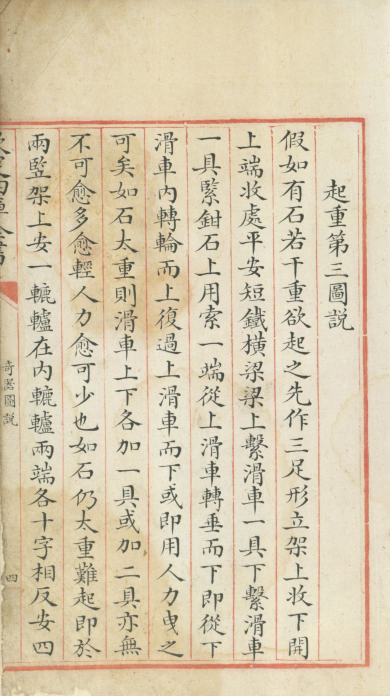 起重第三圖說
假如有石若干重欲起之先作三足形立架上收下開
上端收處平安短鐵橫梁梁上繫滑車一具下繫滑車
一具緊鉗石上用索一端從上滑車轉垂而下即從下
滑車内轉輪而上復過上滑車而下或即用人力曳之
可矣如石太重則滑車上下各加一具或加二具亦無
不可愈多愈輕人力愈可少也如石仍太重難起即於
兩豎架上安一轆轤在内轆轤兩端各十字相反安四
欽定四庫全書
奇器圖説
四